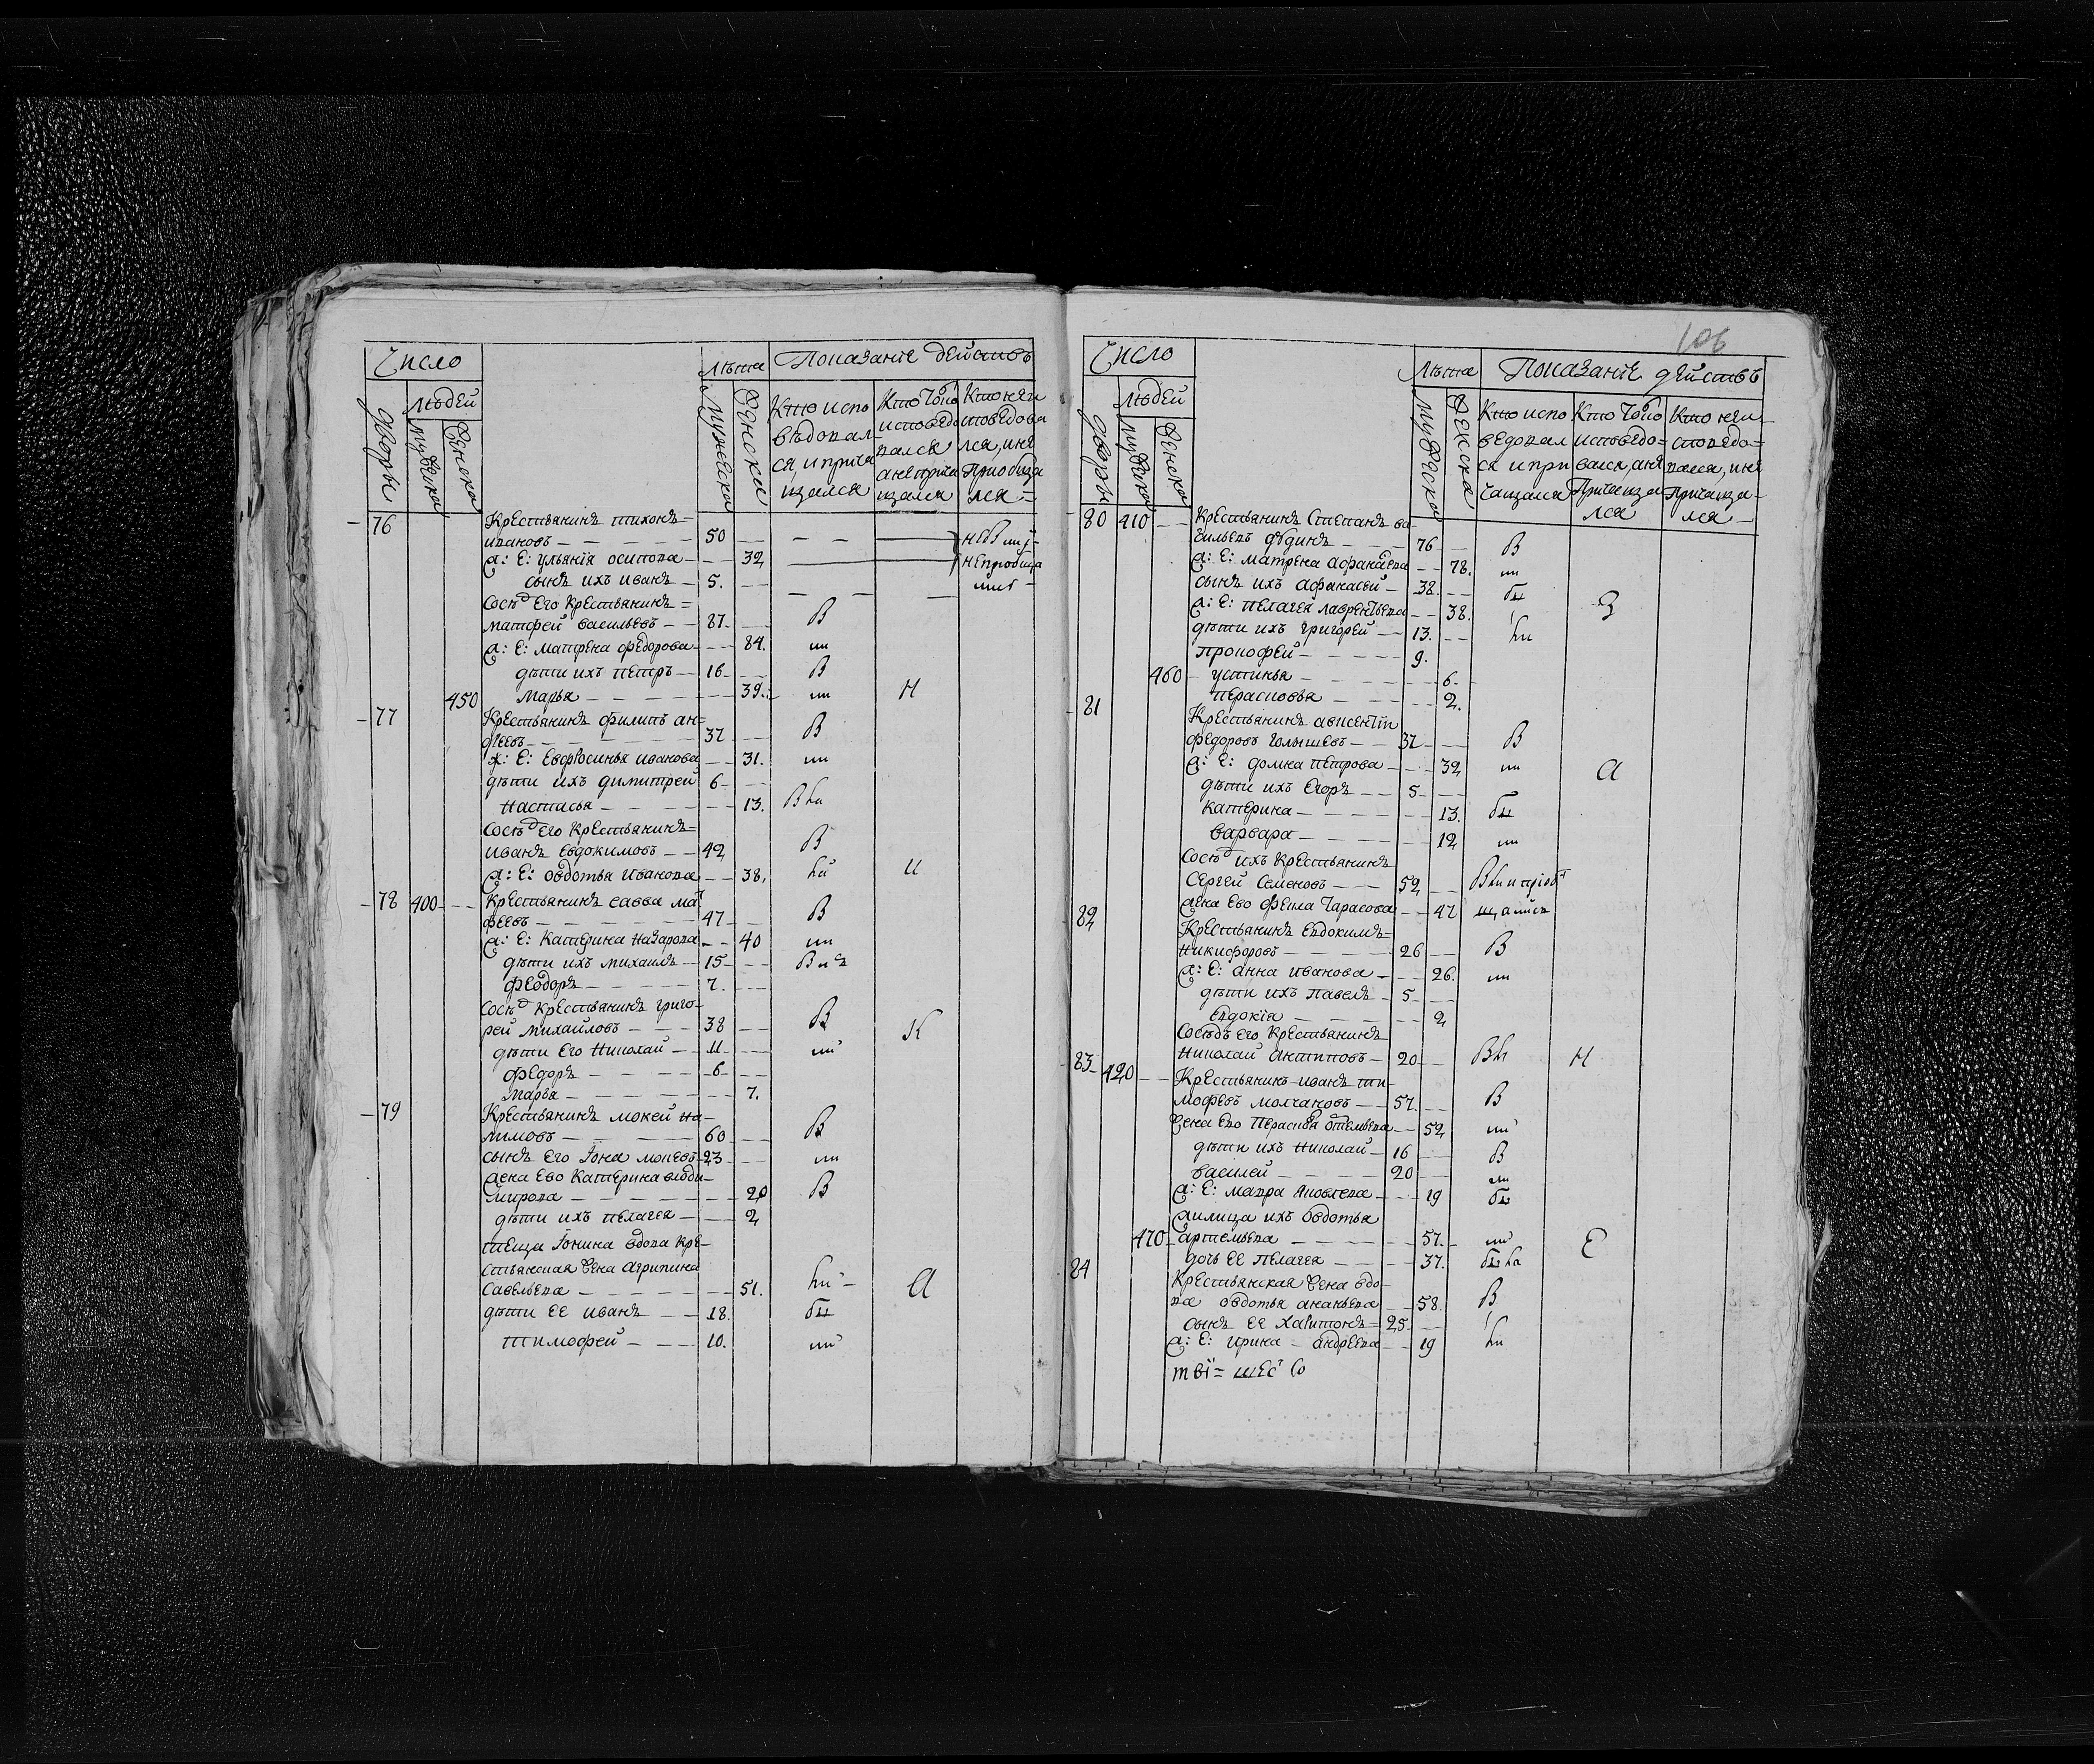 Число
Людей
Дворы
Мужеска
Женска
Лѣта
Мужеска
Женска
Показанїе действъ
Кто испо
вѣдопал
ся, и прича
щался
Кто токо
исповедо
вался
а не прича
щался
Кто не и
споведова
лся, и не
приобща
лся =
76
Крестьянинъ тихонъ =
ивановъ — 50
ж: Е: ульянїя осипова — 32
сынъ ихъ иванъ — 5.
Сосѣд Его Крестьянинъ =
матфей васильевъ — 87 В
ж: Е: матрена федорова — 84. ии
дѣти ихъ петръ — 16 В
450 марья — 39. ии Н
77 Крестьянинъ филипъ ан=
фѣевъ — 37 В
ж: Е: Евфросинья иванова — 31. ии
дѣти ихъ димитрей 6
настасья — 13.
Сосѣд Его Крестьянинъ =
иванъ Евдокимовъ — 42 В
ж: Е: овдотья иванова — 38. И
78 400 Крестьянинъ савва мат
фѣевъ — 47 В
ж: Е: Катерина назарова — 40 ии
дѣти ихъ михаилъ — 15
феодоръ — 7.
Сосѣд Крестьянинъ григо-
рей михаиловъ — 38 В К
дѣти Его николай — 11 ии
федоръ — 6
марья — 7.
79 Крестьянинъ мокей на-
лимовъ — 60 В
сынъ Его Иона мокеевъ 23 ии
жена Ево Катерина влади-
мирова — 20 В
дѣти ихъ пелагея — 2
теща Ионина вдова кре-
стьянская жена агрипина
савельева — 51. А
дѣти ЕЕ иванъ — 18.
тимофей — 10. ии
106
Число
Людей
Дворы
Мужеска
Женска
Лѣта
Мужеска
Женска
Показанїе действъ
Кто испо
ведовал
ся и при
чащался
Кто токо
исповедо=
вался, а не
причаща
лся
Кто не и-
споведо=
вался, и не
причаща-
лся —
80 410 Крестьянинъ Степанъ ва-
сильевъ дѣдинъ — 76 В
ж: Е: матрена афанасева — 78. ии
сынъ ихъ афанасей — 38.
ж: Е: пелагея лаврентьева — 38. З
дѣти ихъ григорей — 13.
прокофей — 9.
460 устинья — 6
перасковья — 2.
81
Крестьянинъ авксентїи
федоровъ голышевъ — 37 В
ж: Е: домна петрова — 32 ии А
дѣти ихъ Егоръ — 5
катерина — 13.
варвара — 12 ии
Сосѣд ихъ Крестьянинъ
Сергей Семеновъ — 52
жена Ево фекла тарасова — 47
82
Крестьянинъ Евдокимъ =
никифоровъ — 26 В
ж: Е: анна иванова — 26. ии
дѣти ихъ павелъ — 5
Евдокїа — 2
Сосѣдъ Его Крестьянинъ
николай антиповъ — 20 Н
83 420 Крестьянинъ иванъ ти-
мофѣевъ молчановъ — 57. В
жена Ево — 52 ии
дѣти ихъ николай — 16 В
василей — 20 ии
ж: Е: мавра яковлева — 19
жилица ихъ овдотья
470 артемьева — 57. ии Е
дочь ЕЕ пелагея — 37.
84
Крестьянская жена вдо-
ва овдотья ананьева — 58. В
сынъ ЕЕ харитонъ = 25
ж: Е: ирина — андреева — 19